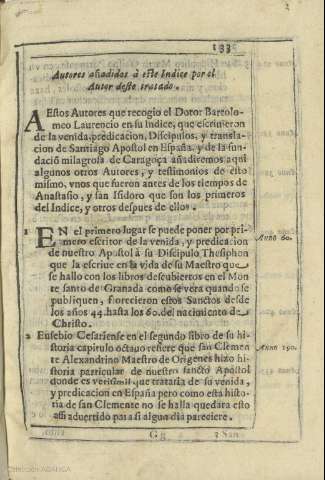 Autores añadidos à este Indice por el
Autor deste tratado.
AEstos Autores que recogio el Dotor Bartolo-
meo Laurencio en su Indice, que escriuieron
de la venida, predicacion, Discipulos, y transla-
cion de Santiago Apostol en España, y de la fun-
dació milagrosa de Caragoça añadiremos aqui
algunos otros Autores, y testimonios de esto
mismo, vnos que fueron antes de los tiempos de
Anastasio, y san Isidoro que son los primeros
del Indice, y otros despues de ellos.
1 EN el primero lugar se puede poner por pri-
mero escritor de la venida, y predicacion
Anno 60.
de nuestro Apostol à su Discipulo Thesiphon
que la escriue en la vida de su Maestro que
se hallo con los libros descubiertos en el Mon
te santo de Granada como se vera quando se
publiquen, florecieron estos Sanctos desde
los años 44. hasta los 60. del nacimiento de
Christo.
2 Eusebio Cesariense en el segundo libro de su hi-
storia capitulo octauo refiere que san Clemen
Anno 190.
te Alexandrino Maestro de Origenes hizo hi-
storia particular de nuestro sancto Apostol
donde es verisimil que trataria de su venida,
y predicacion en España pero como esta histo-
ria de san Clemente no se halla quedara esto
assi aduertido para si algun dia pareciere.
Gg
2 San